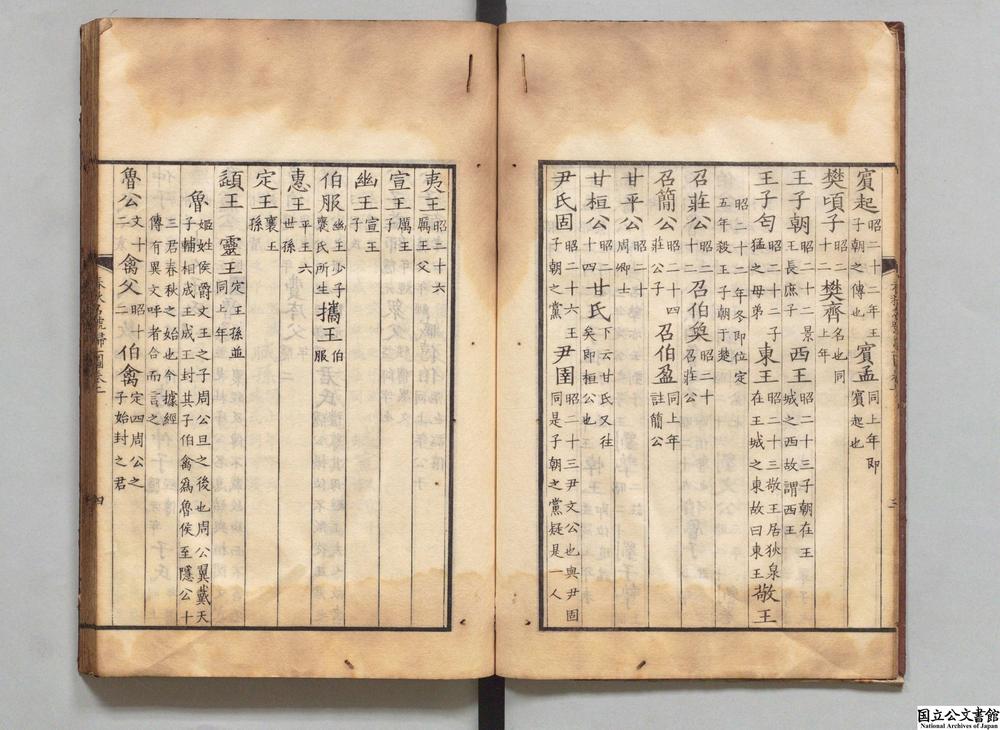 賓起昭二十二年王子朝之傅也賓孟同上年即賓起也
樊頃子昭二十二樊齊名也同上年
王子朝昭二十二景王長庶子西王昭二十三子朝在王城之西故謂西王
王子匄昭二十二子猛之母弟東王昭二十三敬王居狄泉在王城之東故曰東王敬王
昭二十二年冬即位定五年殺王子朝于楚
召莊公昭二十二召伯奐昭二十召莊公
召簡公昭二十四莊公子召伯盈同上年註簡公
甘平公昭二十周卿士
甘桓公昭二十四甘氏下云甘氏又往矣即桓公也
尹氏固昭二十六王子朝之黨尹圉昭二十三尹文公也與尹固同是子朝之黨疑是一人
夷王昭二十六厲王父
宣王厲王子
幽王宣王子
伯服幽王少子褒氏所生攜王伯服
惠王平王六世孫
定王襄王孫
頴王靈王定王孫並同上年
魯姬姓侯爵文王之子周公旦之後也周公翼戴天子輔相成王成王封其子伯禽爲魯侯至隱公十
三君春秋之始也今據經傳有異文呼者合而言之
魯公文十二禽父昭十二伯禽定四周公之子始封之君
四
国立公文書館
National Archives of Japan